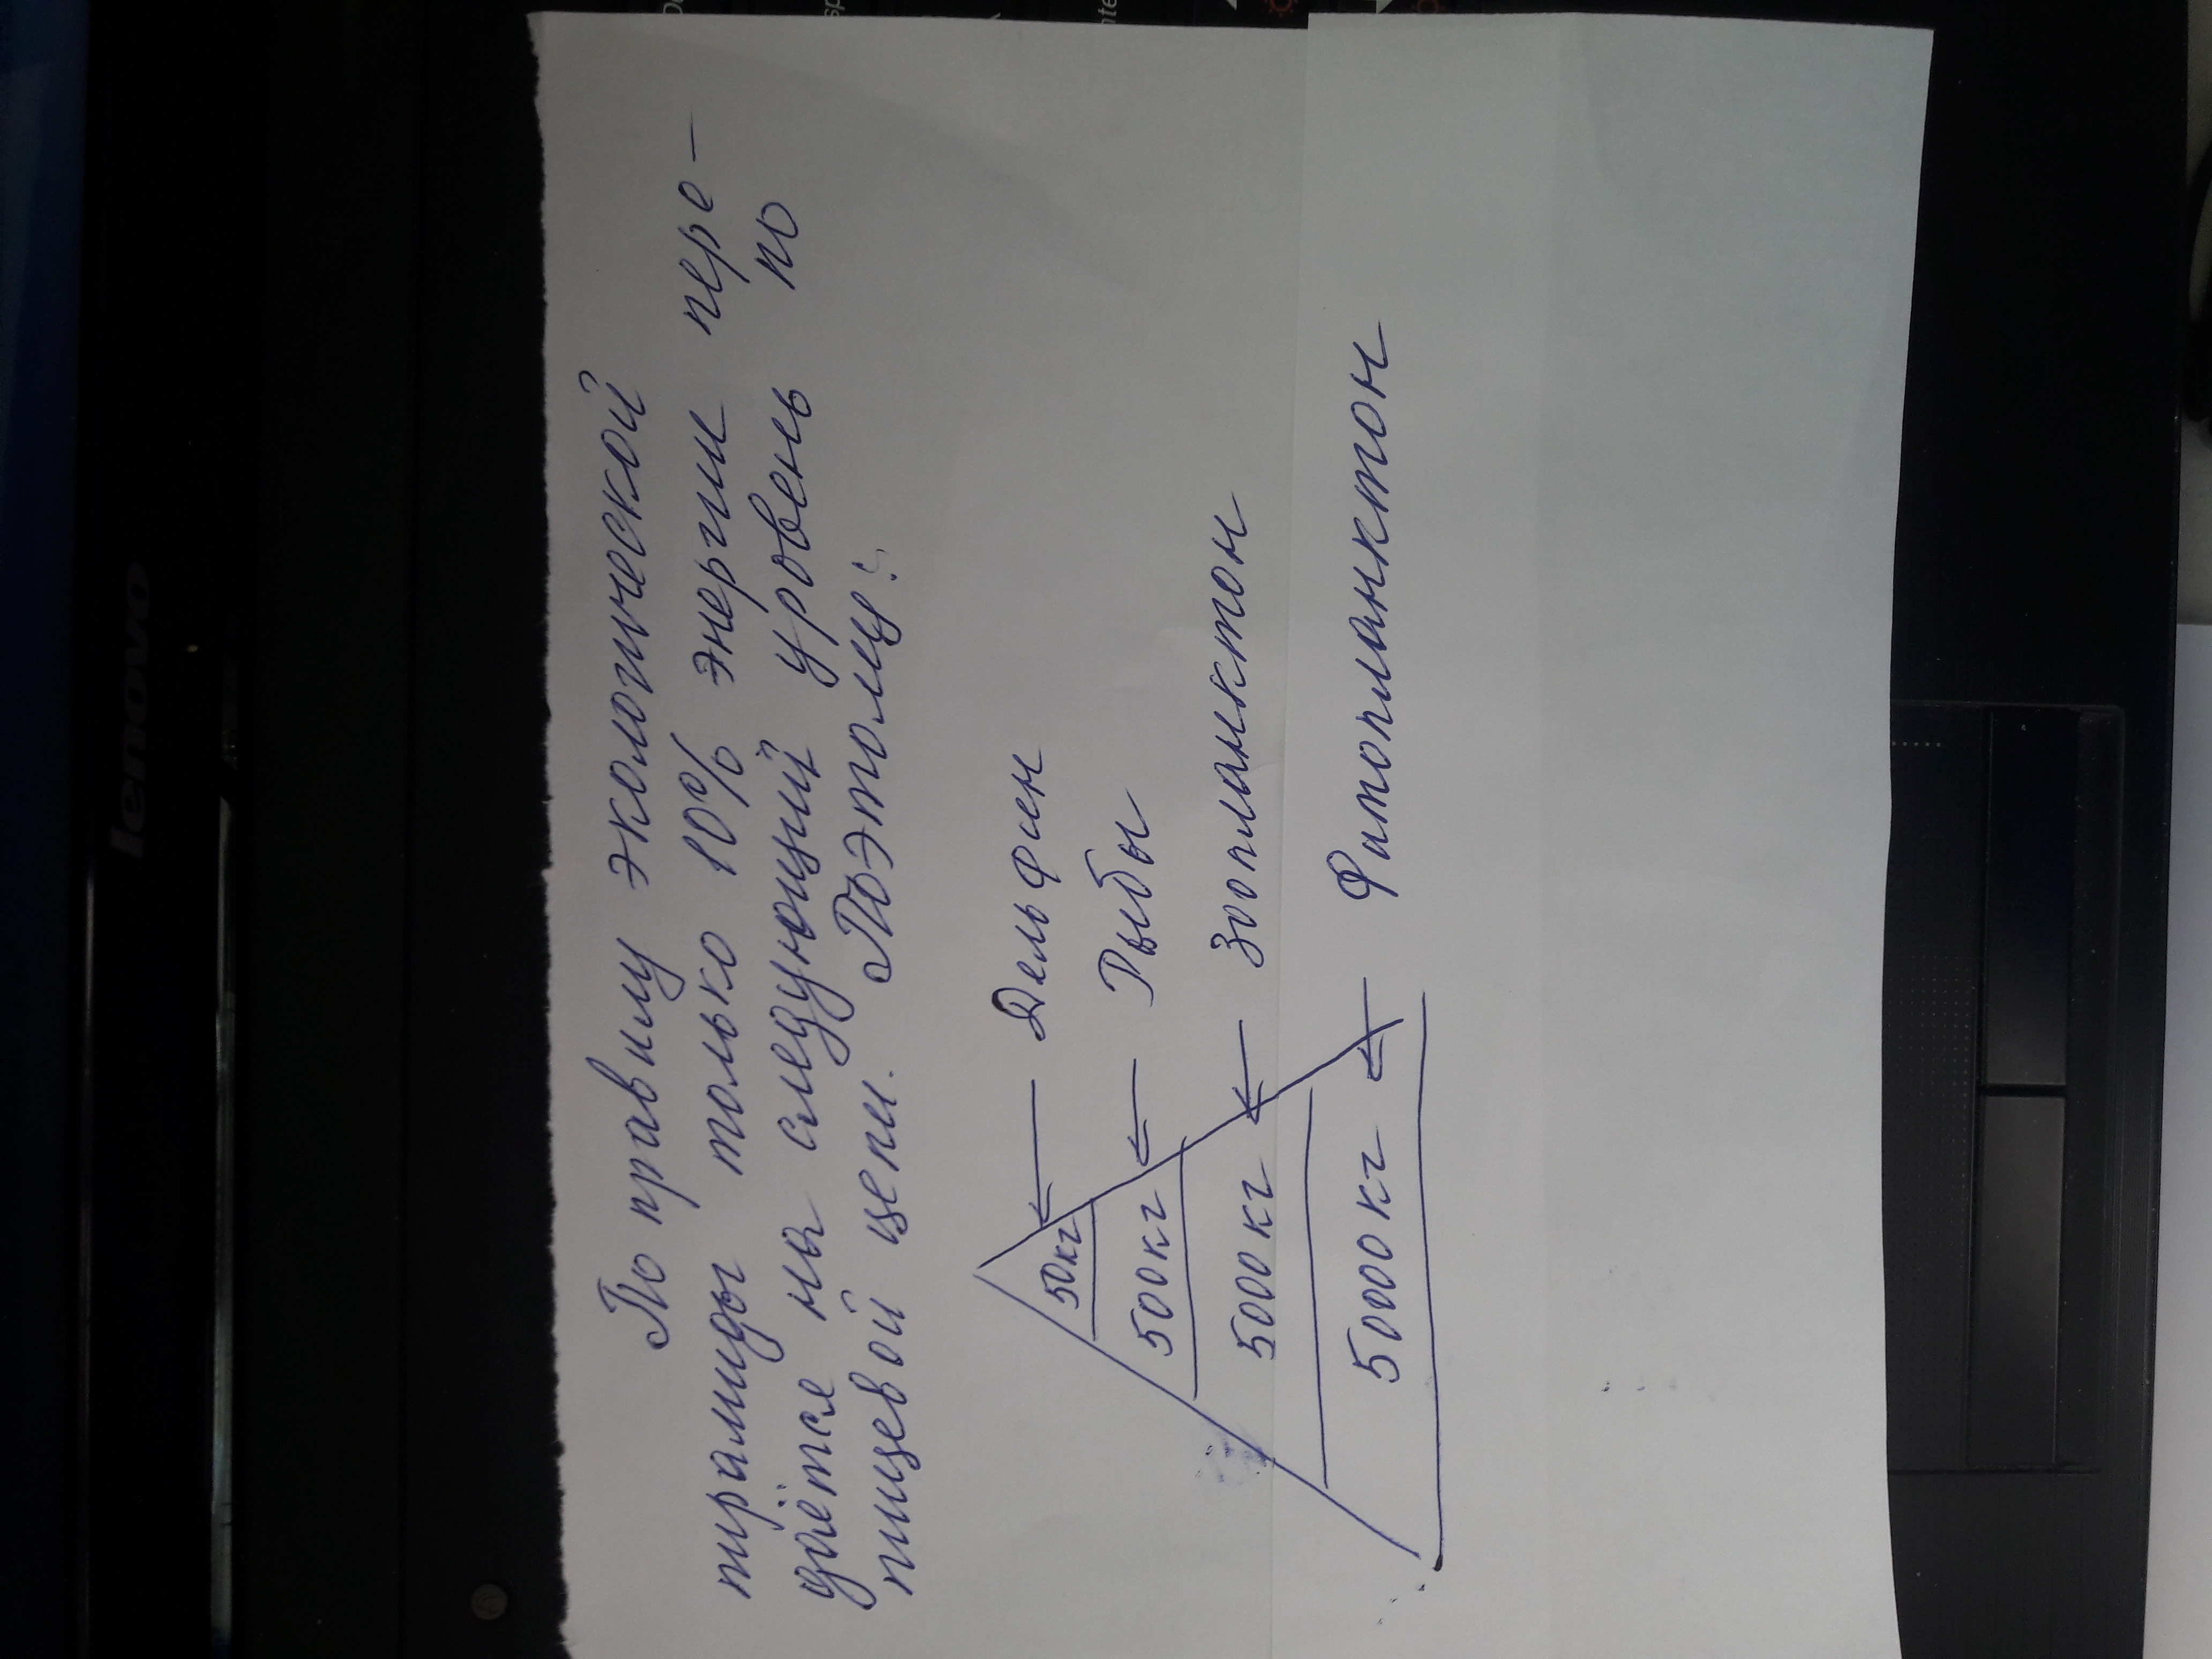 По правилу экологической
пирамиды только 10% энергии пере-
даётся на следующий уровень по
пищевой цепи. Поэтому:
50кг ← Дельфин
500кг ← Рыбы
5000кг ← Зоопланктон
50000кг ← Фитопланктон
lenovo